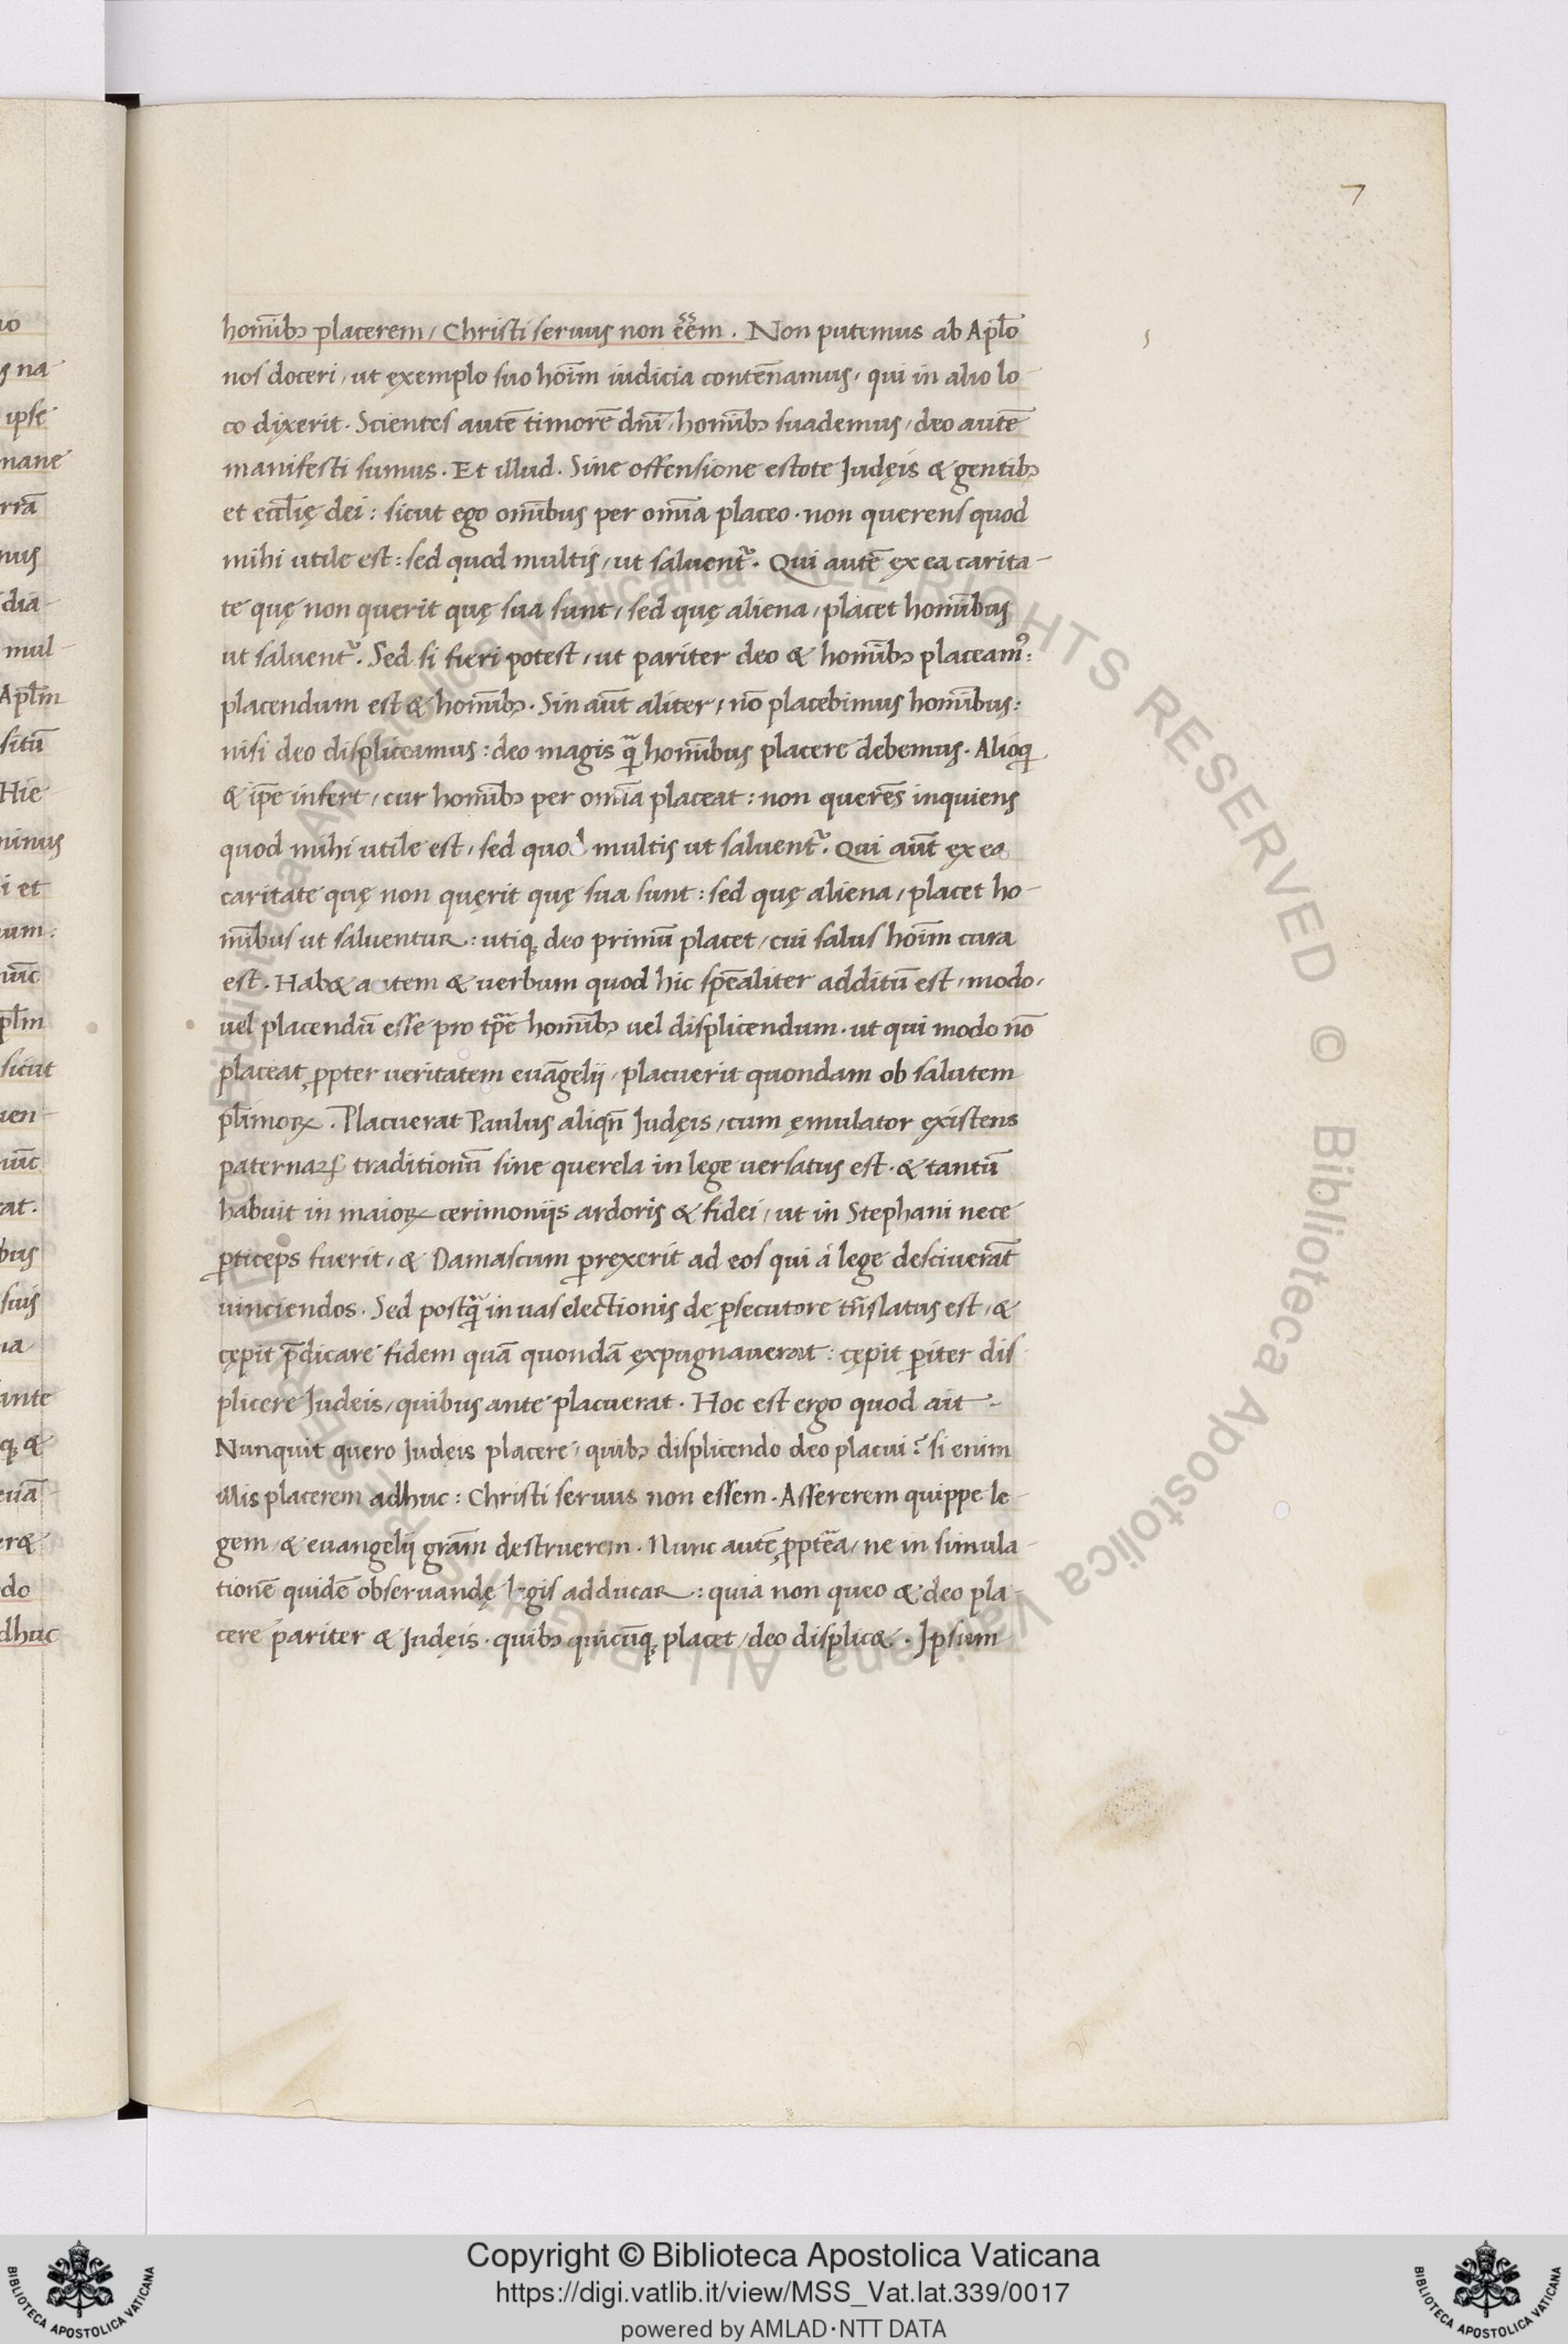 homībꝫ placerem / Christi seruus non eēm . Non putemus ab Aplō
nos doceri / ut exemplo suo hoīm iudicia contēnamus / qui in alio lo-
co dixerit . Scientes autē timorē dnī / homībꝫ suademus / deo autē
manifesti sumus . Et illud . Sine offensione estote Judęis & gentibꝫ
et ecclīę dei : sicut ego omībus per omīa placeo . non querens quod
mihi utile est : sed quod multis / ut saluent᷑ . Qui autē ex ea carita-
te quę non querit quę sua sunt / sed quę aliena / placet homībus
ut saluent᷑ . Sed si fieri potest / ut pariter deo & homībꝫ placeamꝰ :
placendum est & homībꝫ . Sin aūt aliter / nō placebimus homībus :
nisi deo displiceamus : deo magis q̄ homībus placere debemus . Alioq
& ip̄e infert / cur homībꝫ per omīa placeat : non querēs inquiens
quod mihi utile est / sed quod multis ut saluent᷑ . Qui aūt ex ea
caritate quę non quęrit quę sua sunt : sed quę aliena / placet ho-
mībus ut saluentur : utiq; deo primū placet / cui salus hoīm cura
est . Hab& autem & uerbum quod hic spēaliter additū est / modo /
uel placendū esse pro tp̄e homībꝫ uel displicendum . ut qui modo nō
placeat ꝓpter ueritatem euāgelij / placuerit quondam ob salutem
pl̄imoꝝ . Placuerat Paulus aliqn̄ Judęis / cum ęmulator existens
paternaꝝ traditionū sine querela in lege uersatus est . & tantū
habuit in maioꝝ cerimoniis ardoris & fidei / ut in Stephani nece
ꝑticeps fuerit / & Damascum ꝑrexerit ad eos qui à lege desciuerāt
uinciendos . Sed postq̄ in uas electionis de ꝑsecutore trn̄slatus est / &
cępit p̄dicare fidem quā quondā expugnauerat : cępit ꝑiter dis-
plicere Judeis / quibus ante placuerat . Hoc est ergo quod ait -
Nunquit quero Judeis placere / quibꝫ displicendo deo placui ? si enim
illis placerem adhuc : Christi seruus non essem . Assererem quippe le-
gem / & euangelij grām destruerem . Nunc autē ꝓptēa / ne in simula-
tionē quidē obseruandę legis adducar : quia non queo & deo pla-
cere pariter & Judęis . quibꝫ quicūq; placet / deo displic& . Ipsum
7
Copyright © Biblioteca Apostolica Vaticana
https://digi.vatlib.it/view/MSS_Vat.lat.339/0017
powered by AMLAD·NTT DATA